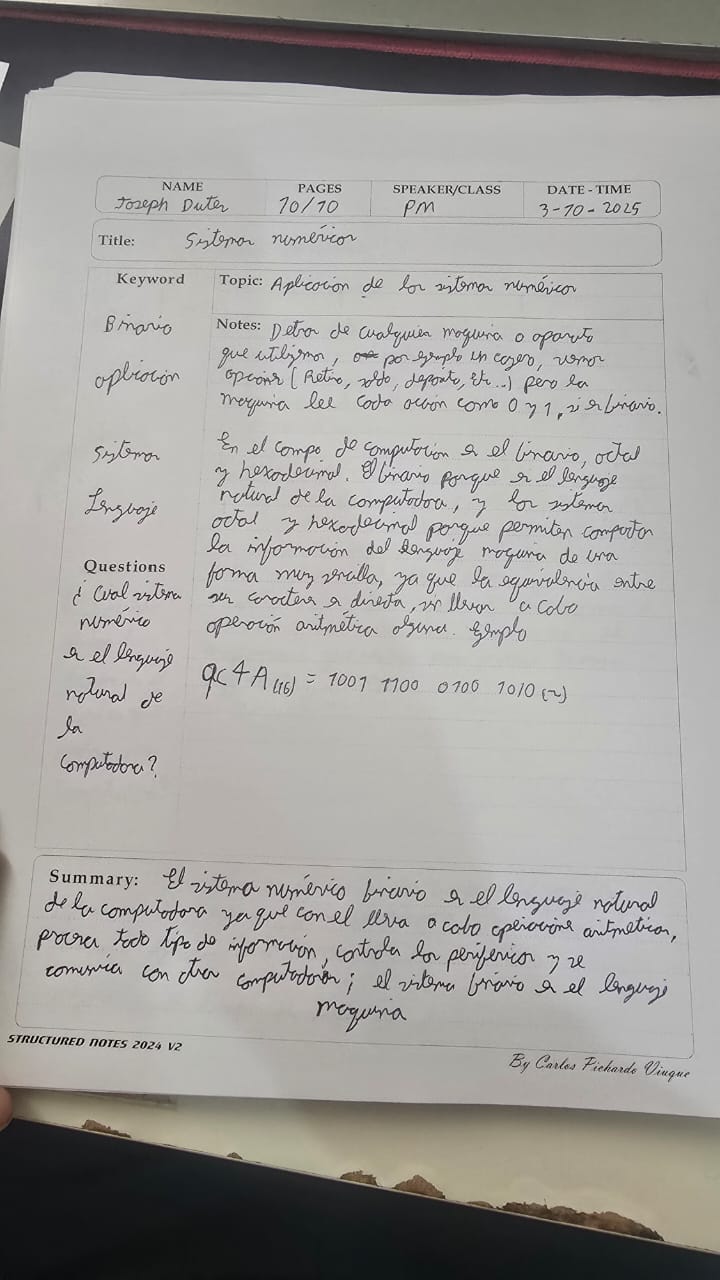 NAME PAGES SPEAKER/CLASS DATE - TIME
Joseph Duter 10/10 PM 3-10-2025
Title: Sistemas numéricos
Keyword
Topic: Aplicación de los sistemas numéricos
Binario
aplicación
Sistemas
Lenguaje
Notes: Detras de cualquier maquina o aparato
que utilizamos, por ejemplo un cajero, vemos
opciones (Retiro, saldo, deposito, Etc...) pero la
maquina lee cada acción como 0 y 1, si es binario.
En el campo de computación es el binario, octal
y hexadecimal. El binario porque es el lenguaje
natural de la computadora, y los sistemas
octal y hexadecimal porque permiten compactar
la información del lenguaje maquina de una
forma muy sencilla, ya que la equivalencia entre
sus caracteres es directa, sin llevar a cabo
operación aritmética alguna. Ejemplo
9C4A(16) = 1001 1100 0100 1010 (2)
Questions
¿Cual sistema
numérico
es el lenguaje
natural de
la
computadora?
Summary: El sistema numérico binario es el lenguaje natural
de la computadora ya que con el lleva a cabo operaciones aritméticas,
procesa todo tipo de información, controla los periféricos y se
comunica con otras computadoras; el sistema binario es el lenguaje
maquina
STRUCTURED NOTES 2024 V2
By Carlos Pichardo Viuque